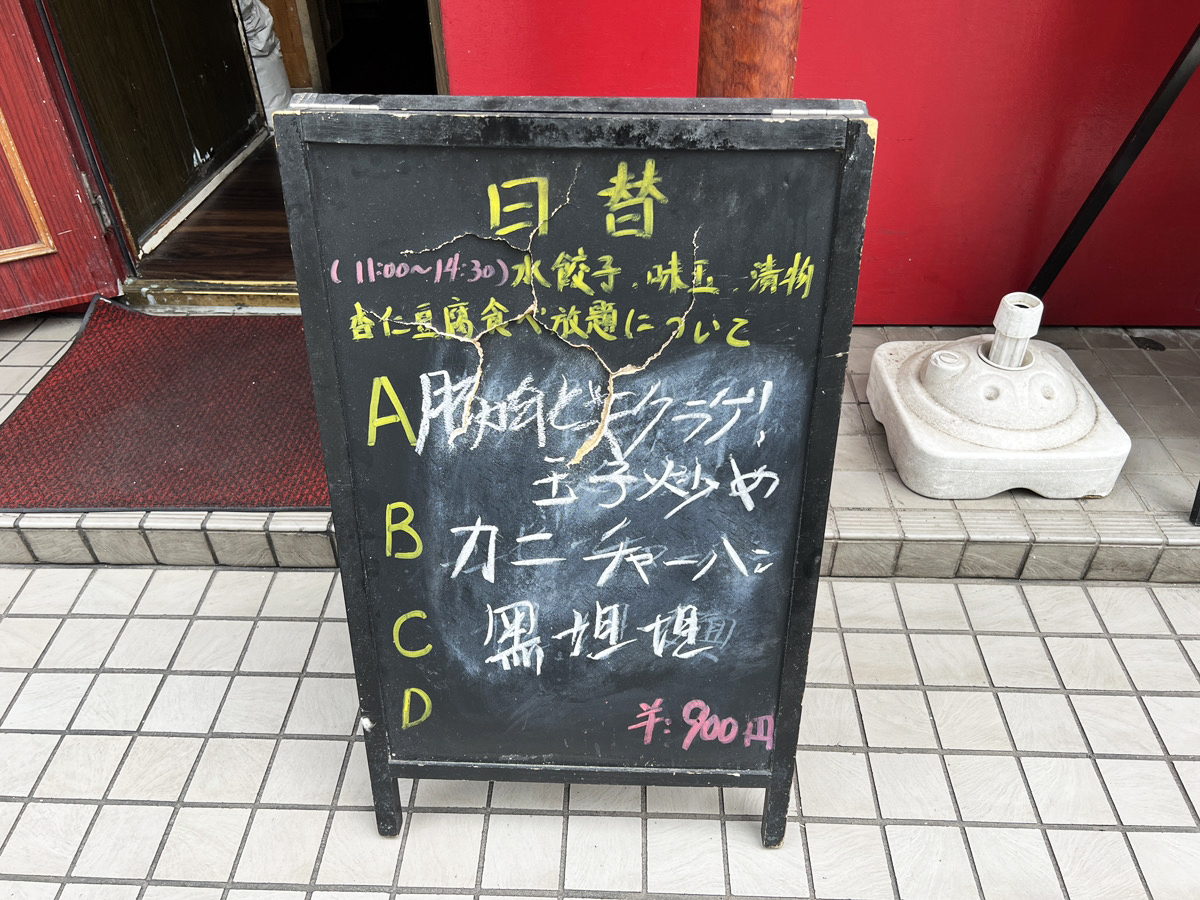 日替
(11:00～14:30) 水餃子、味玉、漬物
杏仁豆腐食べ放題について
A 豚肉とキクラゲ
玉子炒め
B カニチャーハン
C 黒坦坦
D
¥:900円